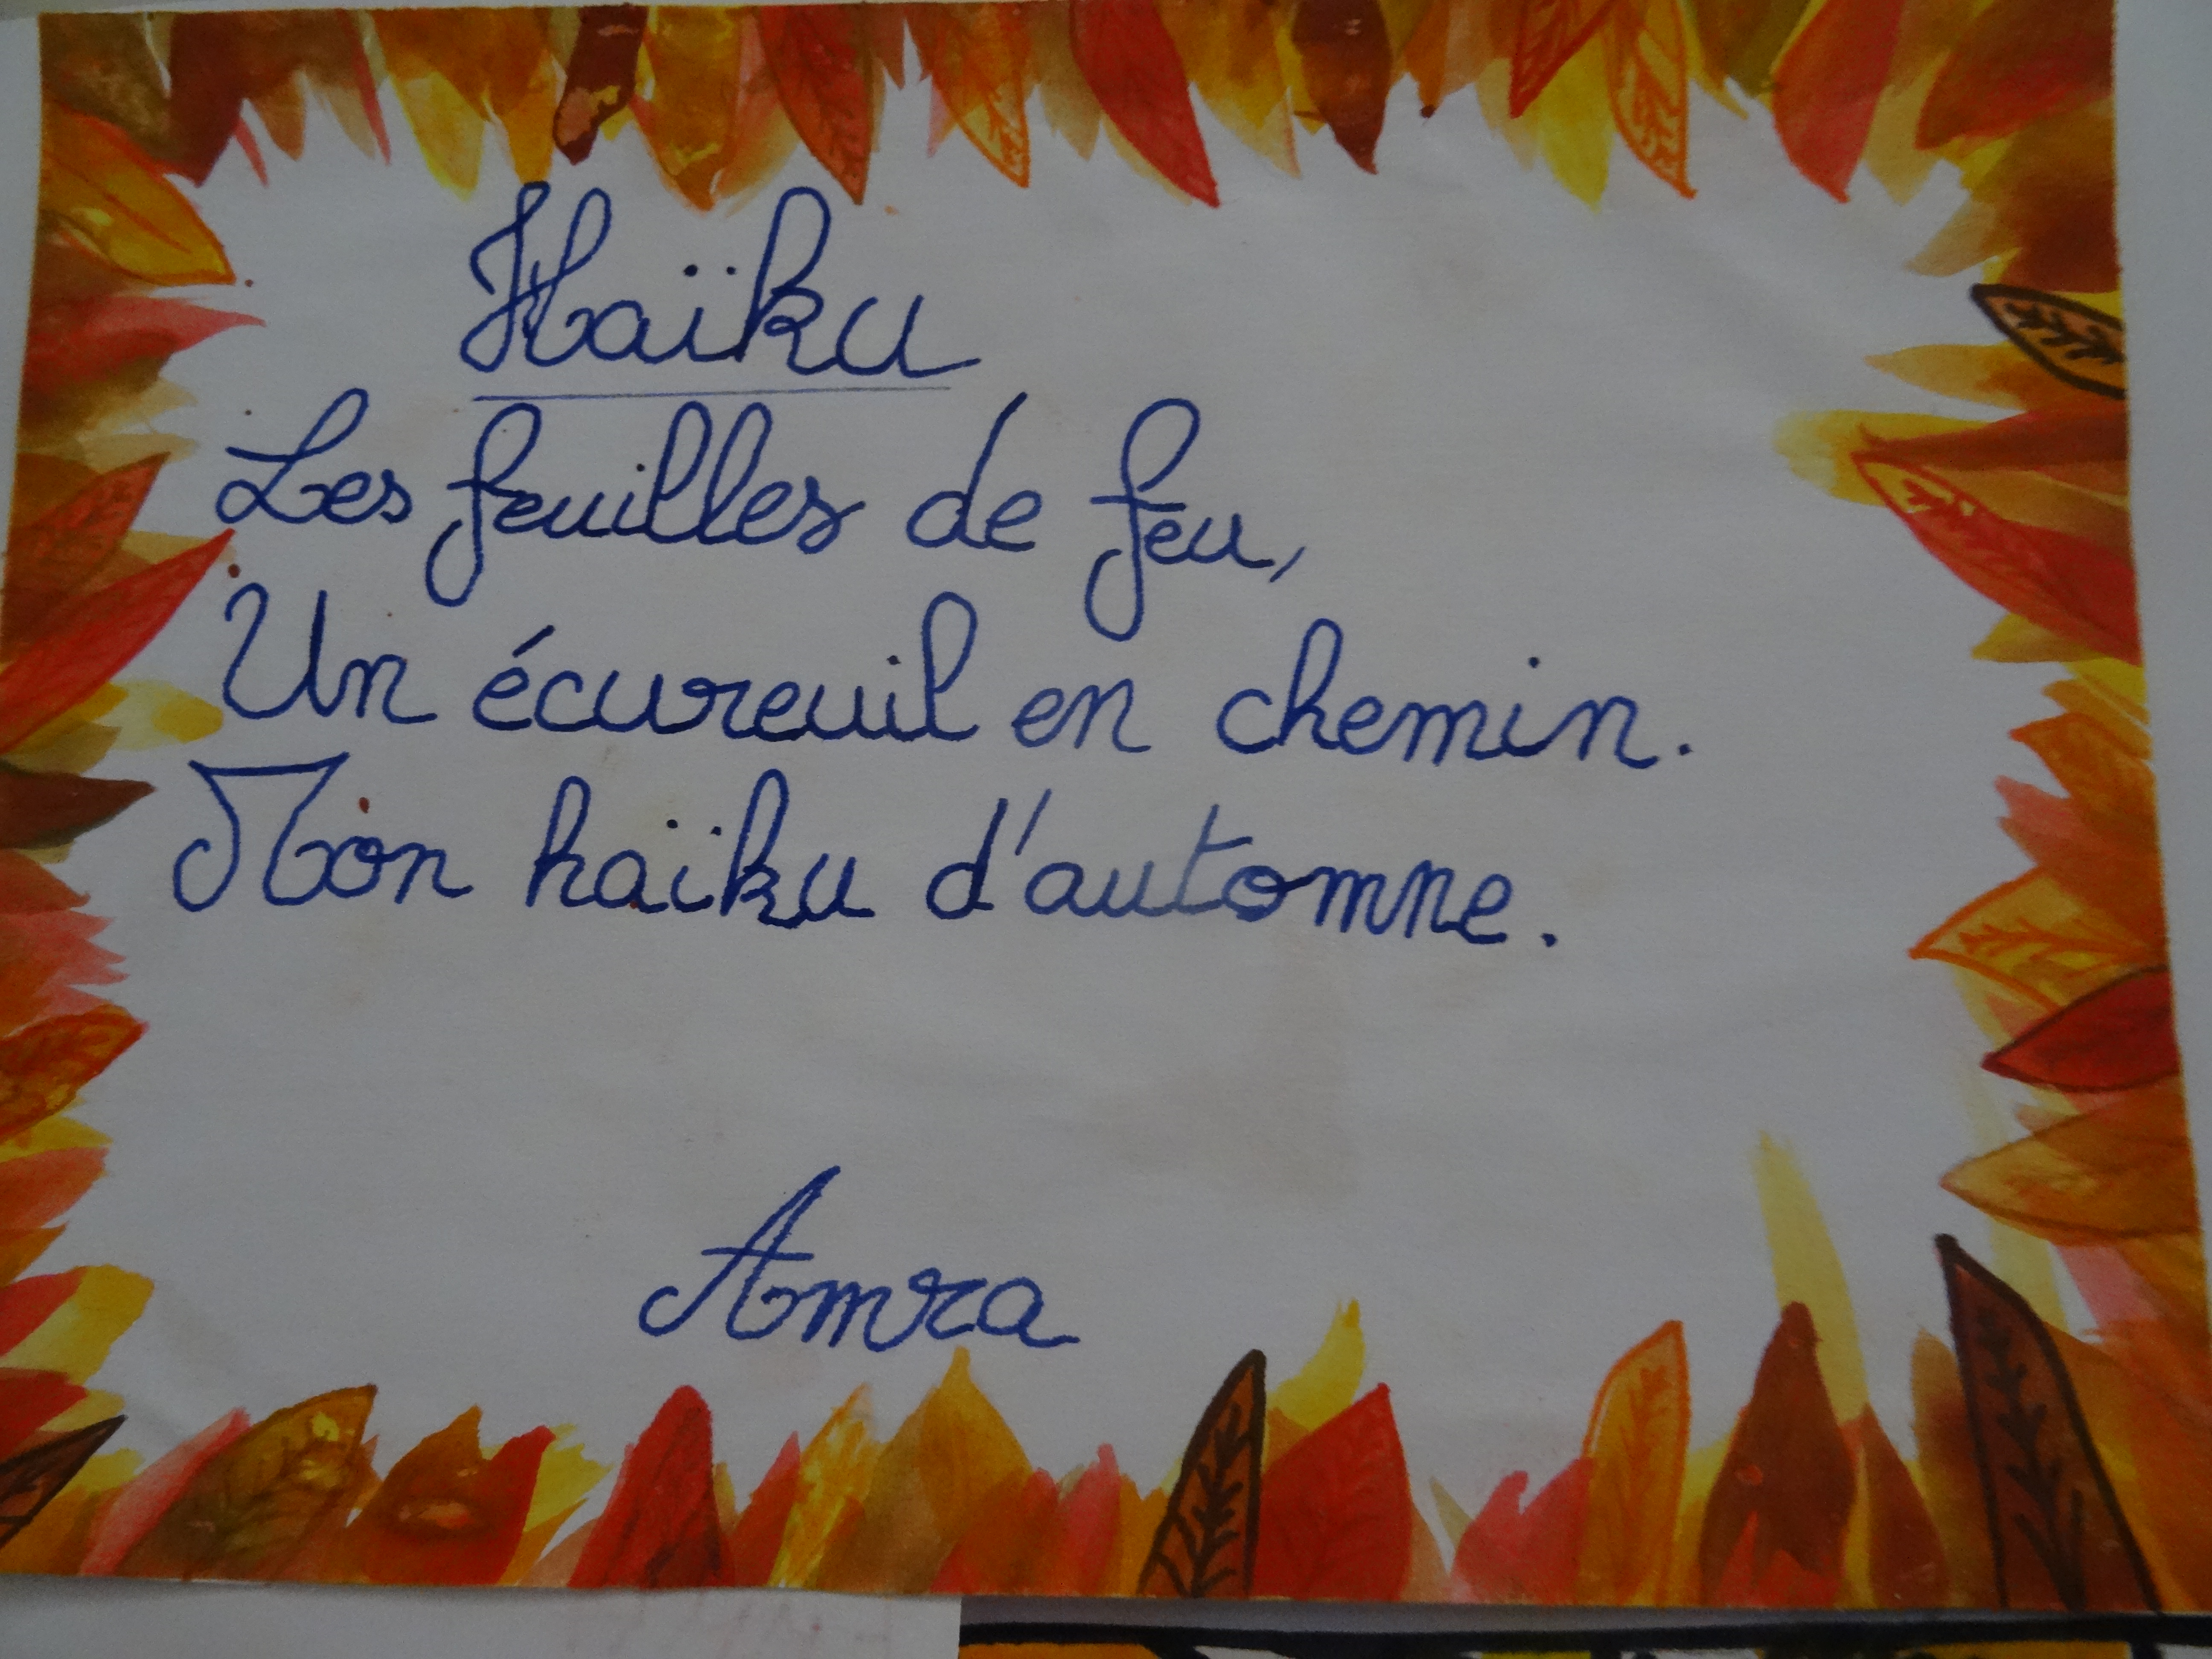 Haïku
Les feuilles de feu,
Un écureuil en chemin.
Mon haïku d'automne.
Amra